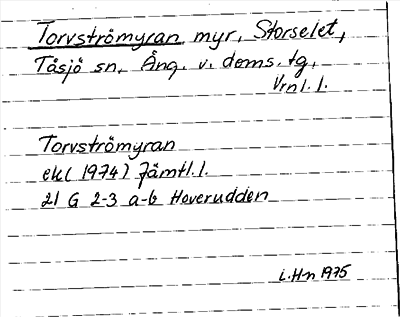 Torvströmyran myr, Storselet,
Tåsjö sn, Ång. v. doms. tg,
Vrnl. l.
Torvströmyran
ek( 1974) Jämtl.l.
21 G 2-3 a-b Hoverudden
i.Hn 1975